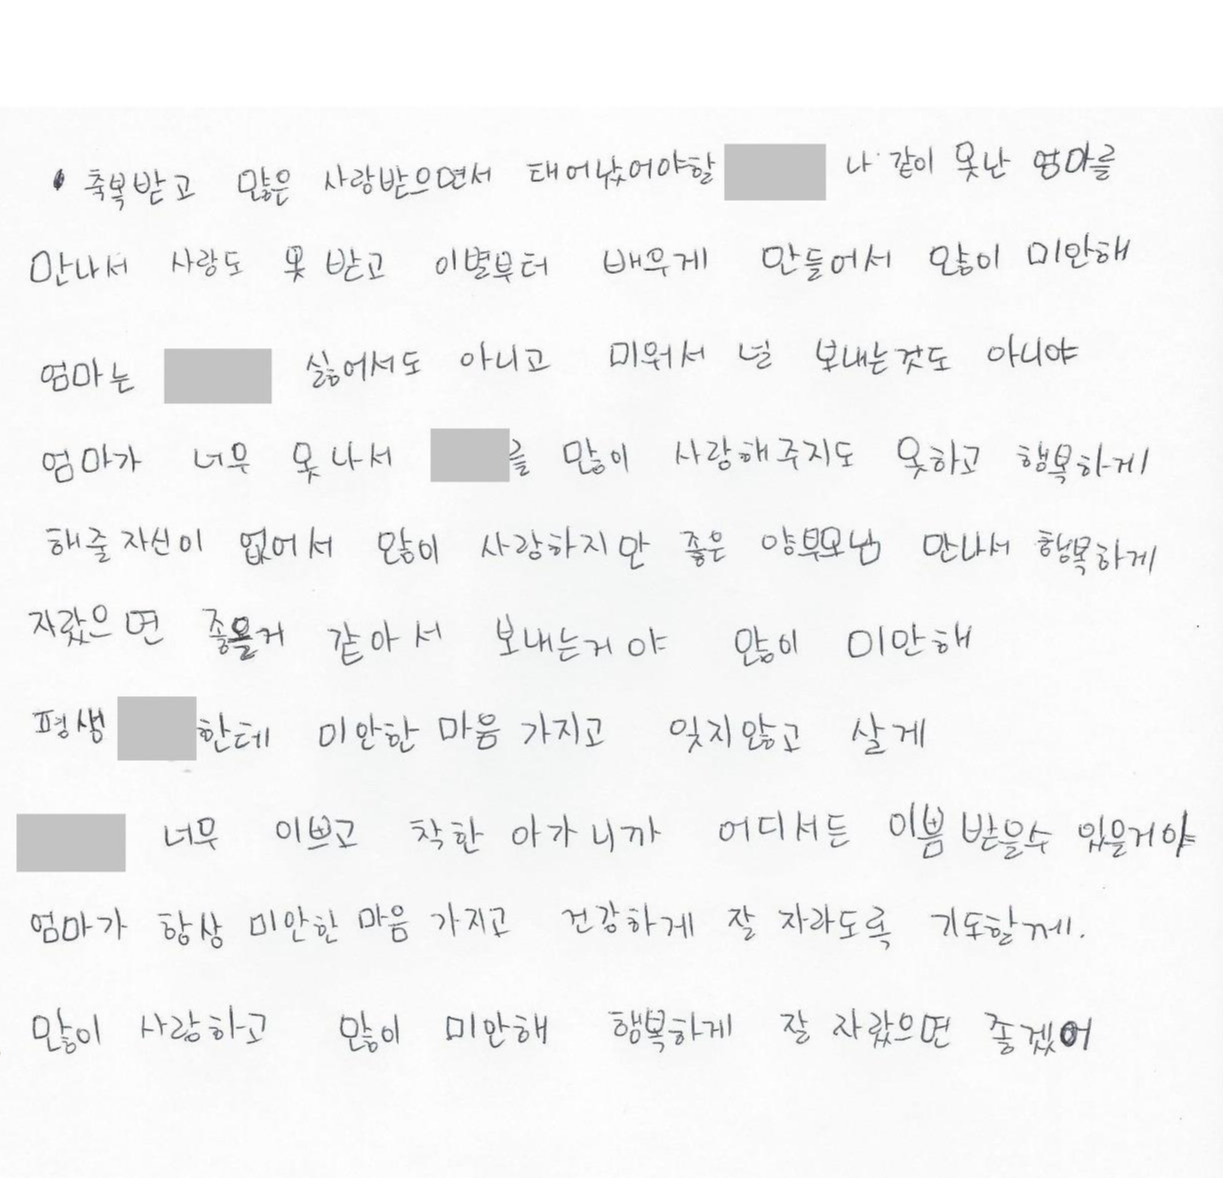 축복받고 많은 사랑받으면서 태어났어야할 나 같이 못난 엄마를
만나서 사랑도 못 받고 이별부터 배우게 만들어서 많이 미안해
엄마는 싫어서도 아니고 미워서 널 보내는것도 아니야
엄마가 너무 못나서 를 많이 사랑해주지도 못하고 행복하게
해줄자신이 없어서 많이 사랑하지만 좋은 양부모님 만나서 행복하게
자랐으면 좋을거 같아서 보내는거야 많이 미안해
평생 한테 미안한 마음 가지고 잊지않고 살게
너무 이쁘고 착한 아가니까 어디서든 이쁨 받을수 있을거야
엄마가 항상 미안한 마음 가지고 건강하게 잘 자라도록 기도할께.
많이 사랑하고 많이 미안해 행복하게 잘 자랐으면 좋겠어